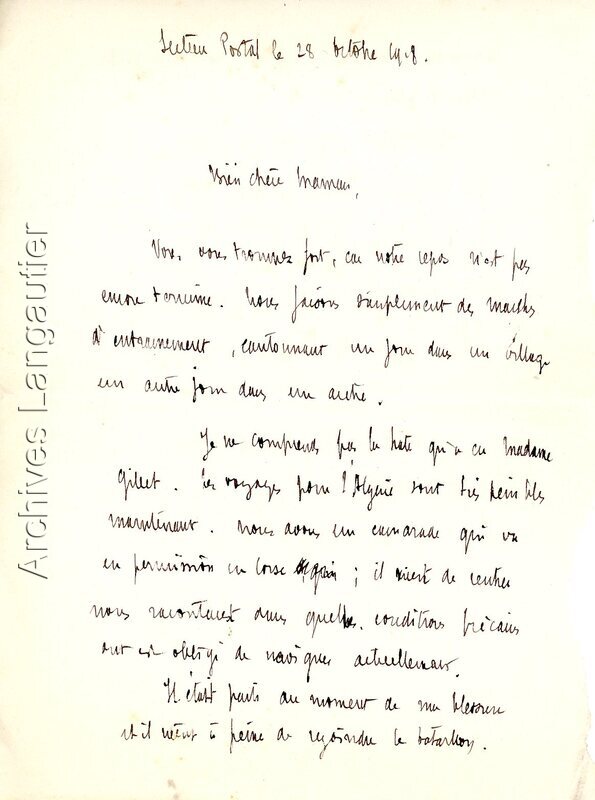 Secteur Postal le 28 octobre 1918.
Bien chère Maman,
Vous vous trompez fort, car notre repos n'est pas
encore terminé. Nous faisons simplement des marches
d'entrainement, cantonnant un jour dans un village
un autre jour dans un autre.
Je ne comprends pas la hâte qu'a eu Madame
Gillet. Les voyages pour l'Algérie sont très penibles
maintenant. Nous avons un camarade qui va
en permission en Corse ; il vient de rentrer
nous racontant dans quelles conditions précaires
on est obligé de naviguer actuellement.
Il était parti au moment de ma blessure
et il vient à peine de rejoindre le bataillon.
Archives Langautier